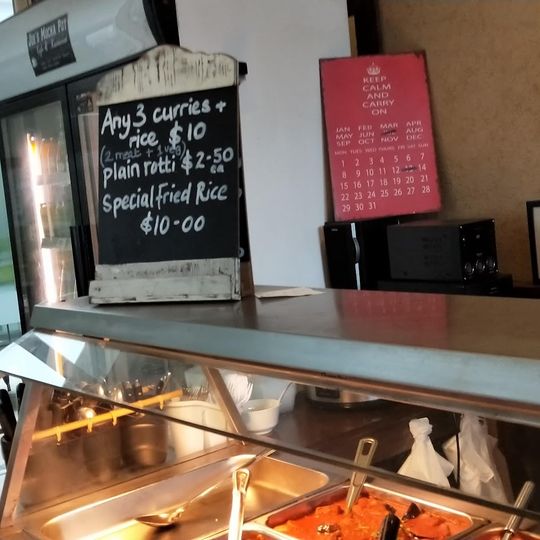 JOE'S MOCHA POT
Cafe & Restaurant
Any 3 curries +
rice $10
(2 meat + 1 veg)
plain rotti $2-50
ea
Special Fried Rice
$10-00
KEEP
CALM
AND
CARRY
ON
JAN FEB MAR APR
MAY JUN JUL AUG
SEP OCT NOV DEC
MON TUES WED THURS FRI SAT SUN
1 2 3 4 5 6 7
8 9 10 11 12 13 14
15 16 17 18 19 20 21
22 23 24 25 26 27 28
29 30 31